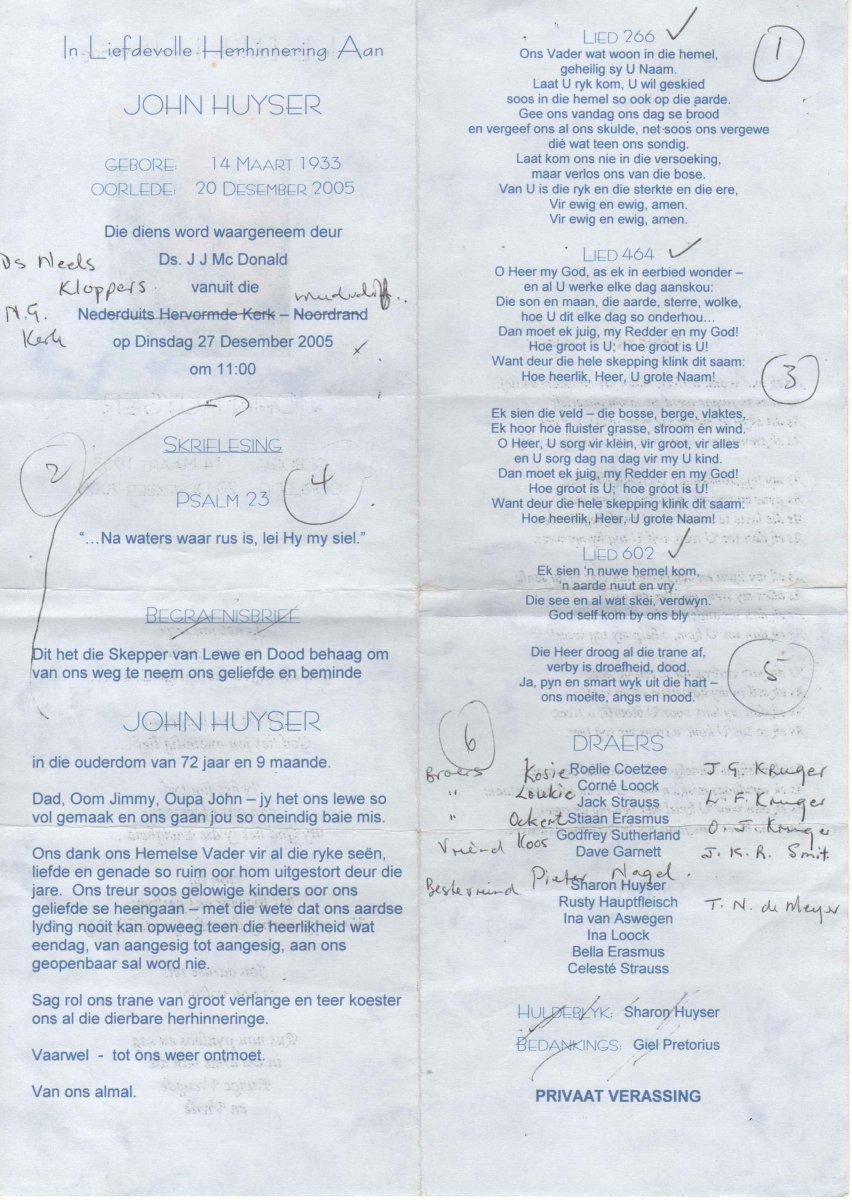 In Liefdevolle Herhinnering Aan
JOHN HUYSER
GEBORE: 14 MAART 1933
OORLEDE: 20 DESEMBER 2005
Die diens word waargeneem deur
Ds. J J Mc Donald
Ds Neels
Kloppers
vanuit die
N.G.
Kerk
Nederduits Hervormde Kerk – Noordrand
op Dinsdag 27 Desember 2005
om 11:00
2
SKRIFLESING
4
PSALM 23
“…Na waters waar rus is, lei Hy my siel.”
BEGRAFNISBRIEF
Dit het die Skepper van Lewe en Dood behaag om
van ons weg te neem ons geliefde en beminde
JOHN HUYSER
in die ouderdom van 72 jaar en 9 maande.
Dad, Oom Jimmy, Oupa John – jy het ons lewe so
vol gemaak en ons gaan jou so oneindig baie mis.
Ons dank ons Hemelse Vader vir al die ryke seën,
liefde en genade so ruim oor hom uitgestort deur die
jare. Ons treur soos gelowige kinders oor ons
geliefde se heengaan – met die wete dat ons aardse
lyding nooit kan opweeg teen die heerlikheid wat
eendag, van aangesig tot aangesig, aan ons
geopenbaar sal word nie.
Sag rol ons trane van groot verlange en teer koester
ons al die dierbare herhinneringe.
Vaarwel - tot ons weer ontmoet.
Van ons almal.
LIED 266
1
Ons Vader wat woon in die hemel,
geheilig sy U Naam.
Laat U ryk kom, U wil geskied
soos in die hemel so ook op die aarde.
Gee ons vandag ons dag se brood
en vergeef ons al ons skulde, net soos ons vergewe
dié wat teen ons sondig.
Laat kom ons nie in die versoeking,
maar verlos ons van die bose.
Van U is die ryk en die sterkte en die ere,
Vir ewig en ewig, amen.
Vir ewig en ewig, amen.
LIED 464
O Heer my God, as ek in eerbied wonder –
en al U werke elke dag aanskou:
Die son en maan, die aarde, sterre, wolke,
hoe U dit elke dag so onderhou…
Dan moet ek juig, my Redder en my God!
Hoe groot is U; hoe groot is U!
Want deur die hele skepping klink dit saam:
Hoe heerlik, Heer, U grote Naam!
3
Ek sien die veld – die bosse, berge, vlaktes,
Ek hoor hoe fluister grasse, stroom én wind.
O Heer, U sorg vir klein, vir groot, vir alles
en U sorg dag na dag vir my U kind.
Dan moet ek juig, my Redder en my God!
Hoe groot is U; hoe groot is U!
Want deur die hele skepping klink dit saam:
Hoe heerlik, Heer, U grote Naam!
LIED 602
Ek sien ‘n nuwe hemel kom,
‘n aarde nuut en vry.
Die see en al wat skei, verdwyn.
God self kom by ons bly
Die Heer droog al die trane af,
verby is droefheid, dood.
Ja, pyn en smart wyk uit die hart –
ons moeite, angs en nood.
5
6
DRAERS
Broers Kosie Roelie Coetzee J. G. Kruger
Corné Loock
" Loukie Jack Strauss L. F. Kruger
" Ockert Stiaan Erasmus O. J. Kruger
Vriend Koos Godfrey Sutherland
Dave Garnett J. K. R. Smit.
Beste vriend Pieter Nagel.
Sharon Huyser
Rusty Hauptfleisch T. N. de Meyer
Ina van Aswegen
Ina Loock
Bella Erasmus
Celesté Strauss
HULDEBLYK: Sharon Huyser
BEDANKINGS: Giel Pretorius
PRIVAAT VERASSING